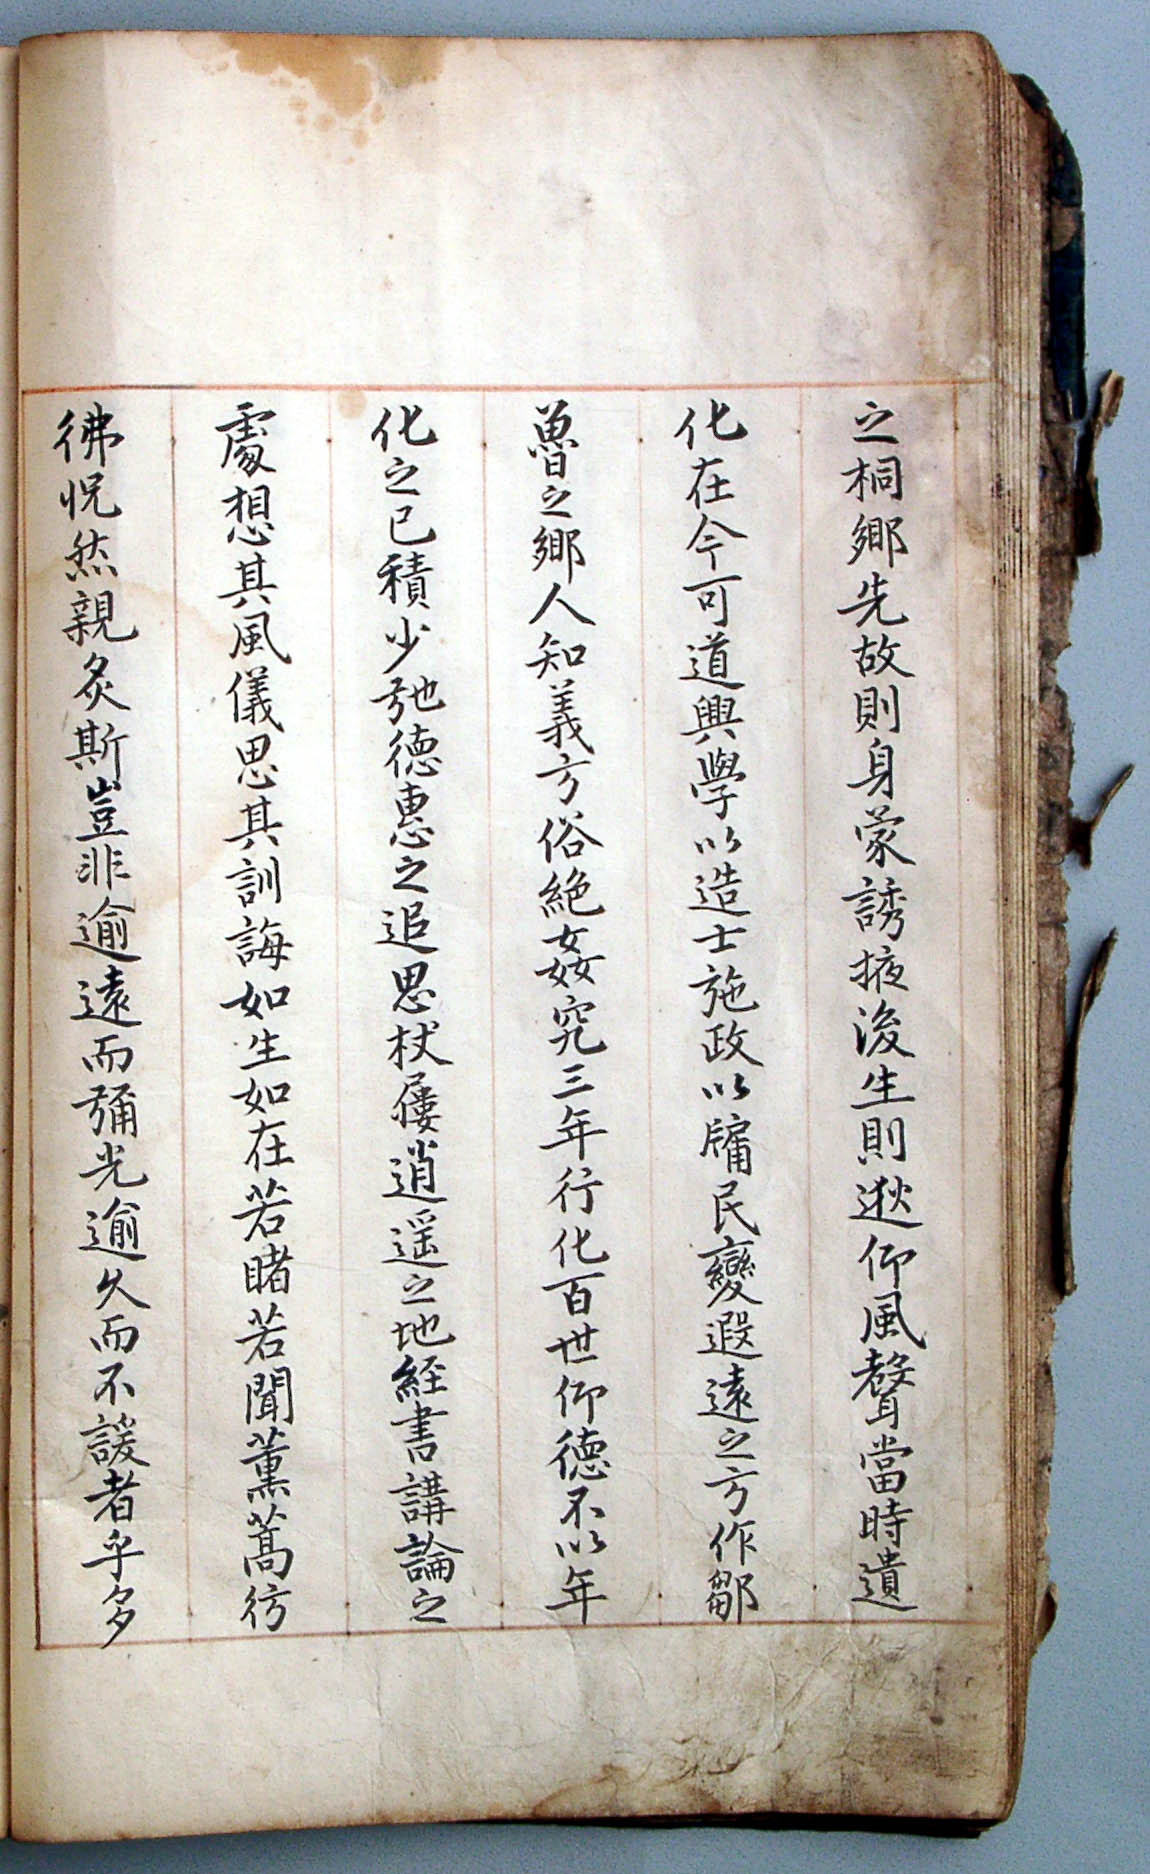 之桐鄉先故則身蒙誘掖後生則逖仰風聲當時遺
化在今可道興學以造士施政以牖民變遐遠之方作鄒
魯之鄉人知義方俗絶姦究三年行化百世仰德不以年
化之已積少弛德惠之追思杖屨逍遥之地経書講論之
處想其風儀思其訓誨如生如在若睹若聞薰蒿彷
彿怳然親炙斯豈非逾遠而彌光逾久而不諼者乎多